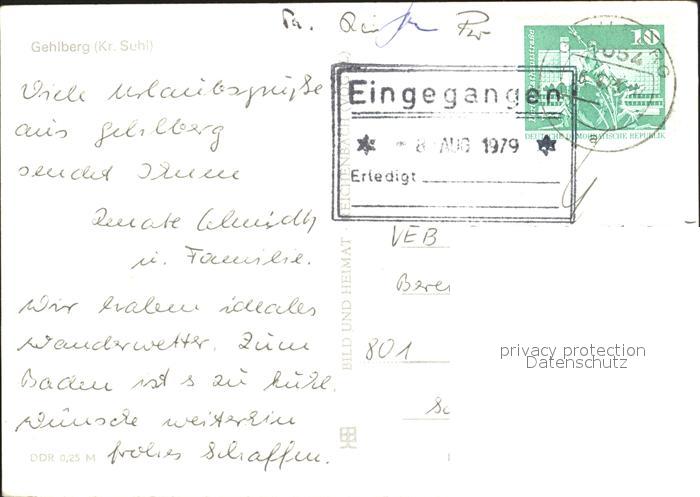 Gehlberg (Kr. Suhl)
Viele Urlaubsgrüße
aus Gehlberg
sendet Ihnen
Renate Schmidt
u. Familie.
Wir haben ideales
Wanderwetter. Zum
Baden ist s zu kühl.
Wünsche weiterhin
frohes Schaffen.
DDR 0,25 M
BILD UND HEIMAT · REICHENBACH
10
DEUTSCHE DEMOKRATISCHE REPUBLIK
Eingegangen
- 8. AUG 1979
Erledigt
VEB
801
privacy protection
Datenschutz